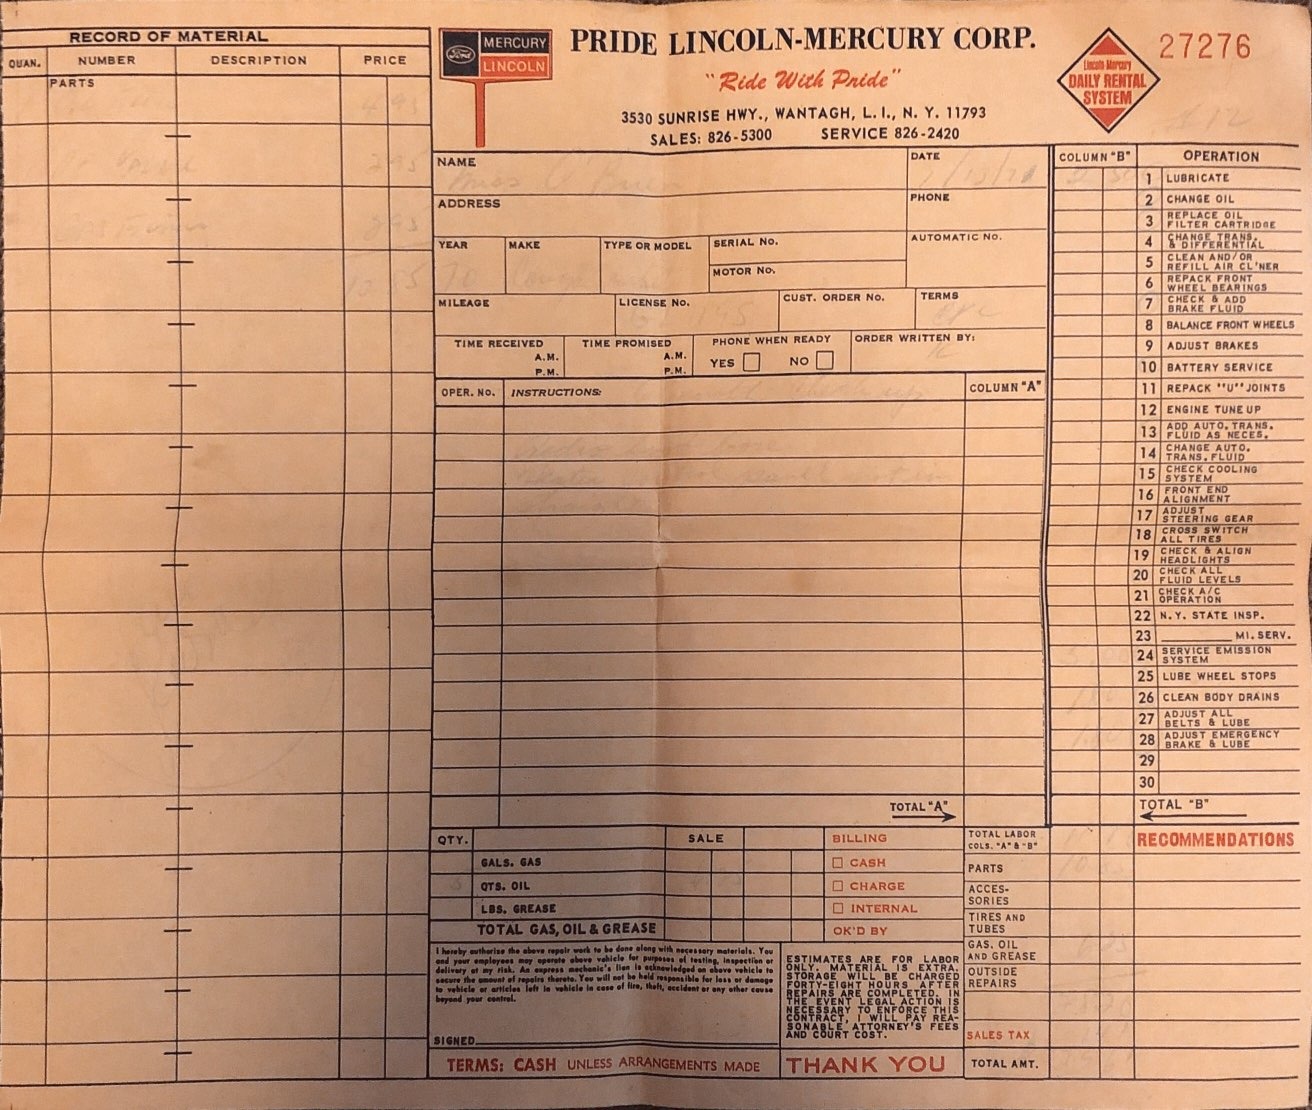 RECORD OF MATERIAL
QUAN. NUMBER DESCRIPTION PRICE
PARTS
4 95
395
895
Ford
MERCURY
LINCOLN
PRIDE LINCOLN-MERCURY CORP.
"Ride With Pride"
3530 SUNRISE HWY., WANTAGH, L. I., N. Y. 11793
SALES: 826-5300 SERVICE 826-2420
Lincoln-Mercury
DAILY RENTAL
SYSTEM
27276
NAME
DATE
ADDRESS
PHONE
YEAR MAKE TYPE OR MODEL SERIAL No. AUTOMATIC NO.
MOTOR No.
MILEAGE LICENSE No. CUST. ORDER No. TERMS
TIME RECEIVED TIME PROMISED PHONE WHEN READY ORDER WRITTEN BY:
A.M. A.M. YES NO
P.M. P.M.
OPER. No. INSTRUCTIONS: COLUMN "A"
TOTAL "A"
COLUMN "B" OPERATION
1 LUBRICATE
2 CHANGE OIL
3 REPLACE OIL
FILTER CARTRIDGE
4 CHANGE TRANS.
& DIFFERENTIAL
5 CLEAN AND/OR
REFILL AIR CL'NER
6 REPACK FRONT
WHEEL BEARINGS
7 CHECK & ADD
BRAKE FLUID
8 BALANCE FRONT WHEELS
9 ADJUST BRAKES
10 BATTERY SERVICE
11 REPACK "U" JOINTS
12 ENGINE TUNE UP
13 ADD AUTO. TRANS.
FLUID AS NECES.
14 CHANGE AUTO.
TRANS. FLUID
15 CHECK COOLING
SYSTEM
16 FRONT END
ALIGNMENT
17 ADJUST
STEERING GEAR
18 CROSS SWITCH
ALL TIRES
19 CHECK & ALIGN
HEADLIGHTS
20 CHECK ALL
FLUID LEVELS
21 CHECK A/C
OPERATION
22 N.Y. STATE INSP.
23 ________ MI. SERV.
24 SERVICE EMISSION
SYSTEM
25 LUBE WHEEL STOPS
26 CLEAN BODY DRAINS
27 ADJUST ALL
BELTS & LUBE
28 ADJUST EMERGENCY
BRAKE & LUBE
29
30
TOTAL "B"
QTY. SALE BILLING
GALS. GAS CASH
QTS. OIL CHARGE
LBS. GREASE INTERNAL
TOTAL GAS, OIL & GREASE OK'D BY
I hereby authorize the above repair work to be done along with necessary materials. You
and your employees may operate above vehicle for purposes of testing, inspection or
delivery at my risk. An express mechanic's lien is acknowledged on above vehicle to
secure the amount of repairs thereto. You will not be held responsible for loss or damage
to vehicle or articles left in vehicle in case of fire, theft, accident or any other cause
beyond your control.
SIGNED
ESTIMATES ARE FOR LABOR
ONLY. MATERIAL IS EXTRA.
STORAGE WILL BE CHARGED
FORTY-EIGHT HOURS AFTER
REPAIRS ARE COMPLETED. IN
THE EVENT LEGAL ACTION IS
NECESSARY TO ENFORCE THIS
CONTRACT, I WILL PAY REA-
SONABLE ATTORNEY'S FEES
AND COURT COST.
TERMS: CASH UNLESS ARRANGEMENTS MADE
THANK YOU
TOTAL LABOR
COLS. "A" & "B"
PARTS
ACCES-
SORIES
TIRES AND
TUBES
GAS, OIL
AND GREASE
OUTSIDE
REPAIRS
SALES TAX
TOTAL AMT.
RECOMMENDATIONS